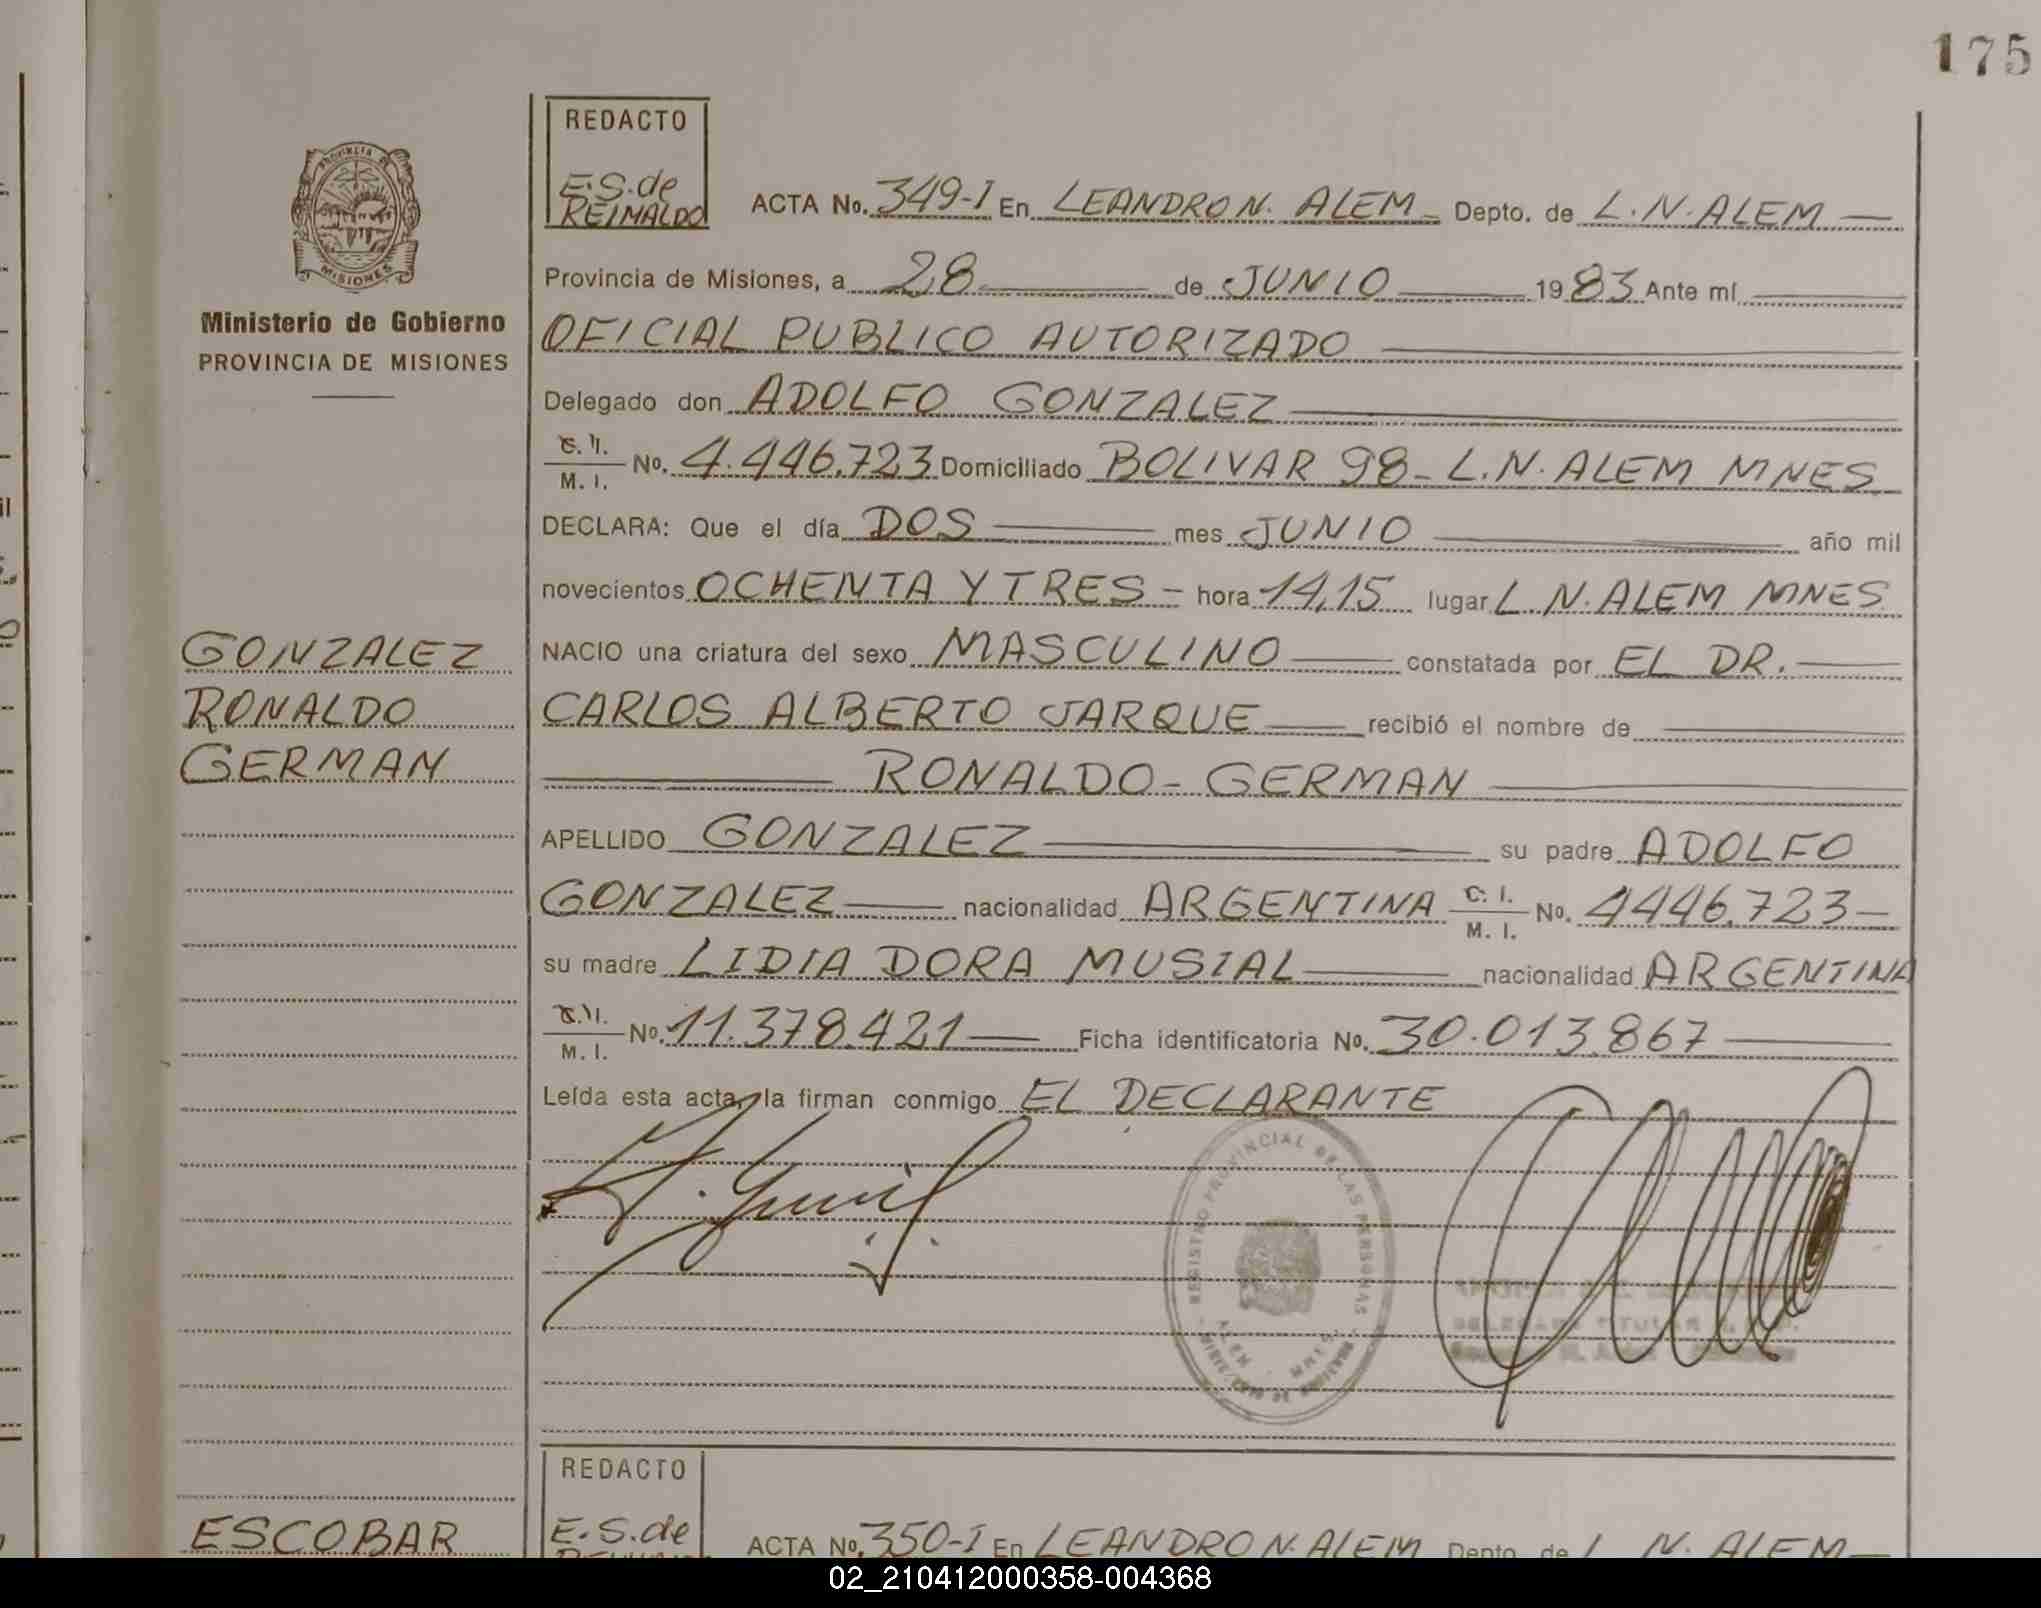 175
REDACTO
E.S. de
REIMALDO
ACTA No. 349-I En LEANDRO N. ALEM - Depto. de L.N. ALEM —
PROVINCIA DE
MISIONES
Ministerio de Gobierno
PROVINCIA DE MISIONES
Provincia de Misiones, a 28 — de JUNIO — 1983 Ante mí —
OFICIAL PUBLICO AUTORIZADO —
Delegado don ADOLFO GONZALEZ —
C. I.
M. I. No. 4.446.723 Domiciliado BOLIVAR 98 - L.N. ALEM MNES
DECLARA: Que el día DOS — mes JUNIO — año mil
novecientos OCHENTA Y TRES - hora 14,15 lugar L N. ALEM MNES
NACIO una criatura del sexo MASCULINO — constatada por EL DR. —
CARLOS ALBERTO JARQUE — recibió el nombre de —
— RONALDO - GERMAN —
GONZALEZ
RONALDO
GERMAN
APELLIDO GONZALEZ — su padre ADOLFO
GONZALEZ — nacionalidad ARGENTINA C. I.
M. I. No. 4446.723 —
su madre LIDIA DORA MUSIAL — nacionalidad ARGENTINA
C. I.
M. I. No. 11.378.421 — Ficha identificatoria No. 30.013.867 —
Leída esta acta, la firman conmigo EL DECLARANTE
REGISTRO PROVINCIAL DE LAS PERSONAS
ALEM - MNES
DELEGADO TITULAR
REDACTO
E.S. de
ACTA No. 350-I En LEANDRO N. ALEM Depto. de L. N. ALEM —
ESCOBAR
02_210412000358-004368